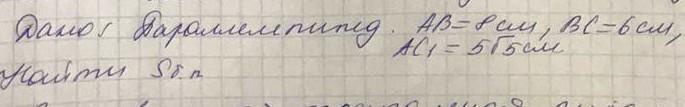 Дано: Параллелепипед. AB=8см, BC=6см,
AC₁=5√5см
Найти Sб.п